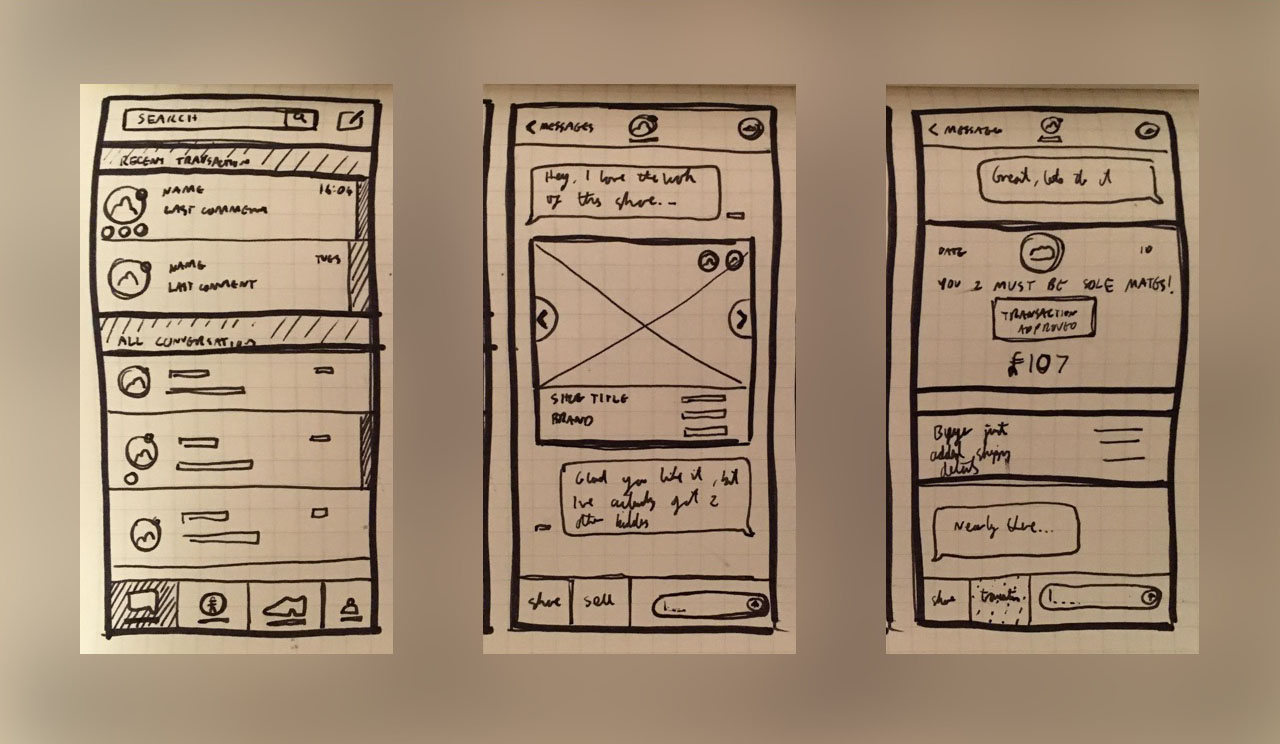 SEARCH
RECENT TRANSACTION
NAME
16:04
LAST COMMENT
NAME
TUES
LAST COMMENT
ALL CONVERSATION
< MESSAGES
Hey, I love the look
of this shoe...
SHOE TITLE
BRAND
Glad you like it, but
I've already got 2
other bidders
shoe
sell
< MESSAGES
Great, lets do it
DATE
ID
YOU 2 MUST BE SOLE MATES!
TRANSACTION
APPROVED
£107
Buyer just
added shipping
details
Nearly there...
shoe